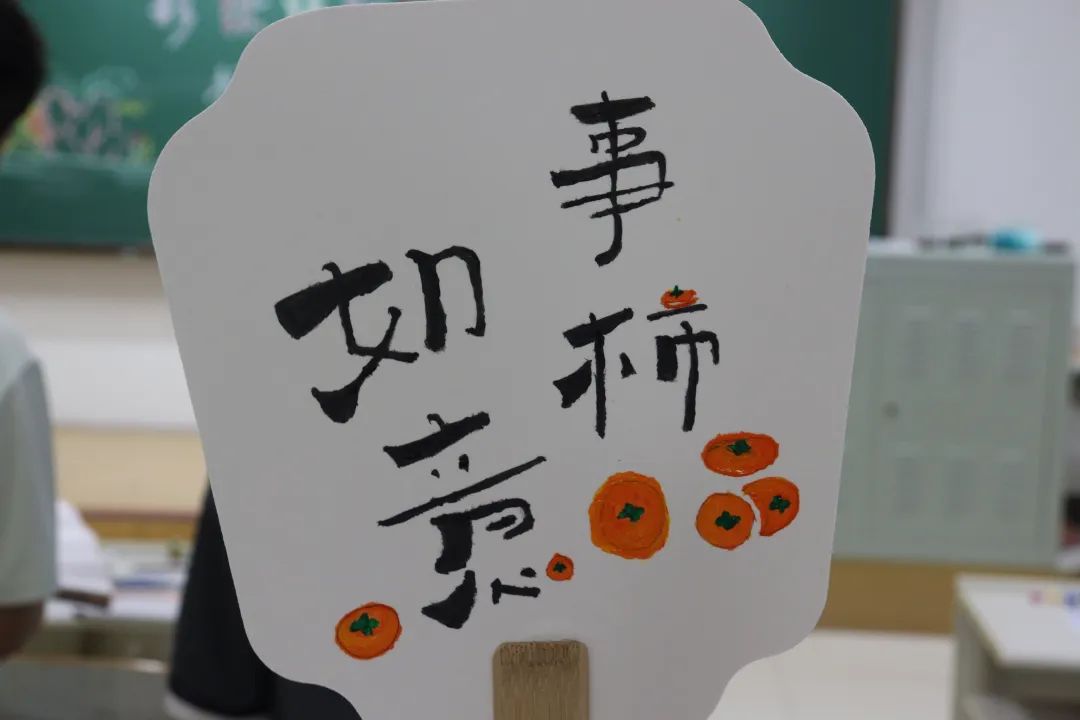 事柿
如意